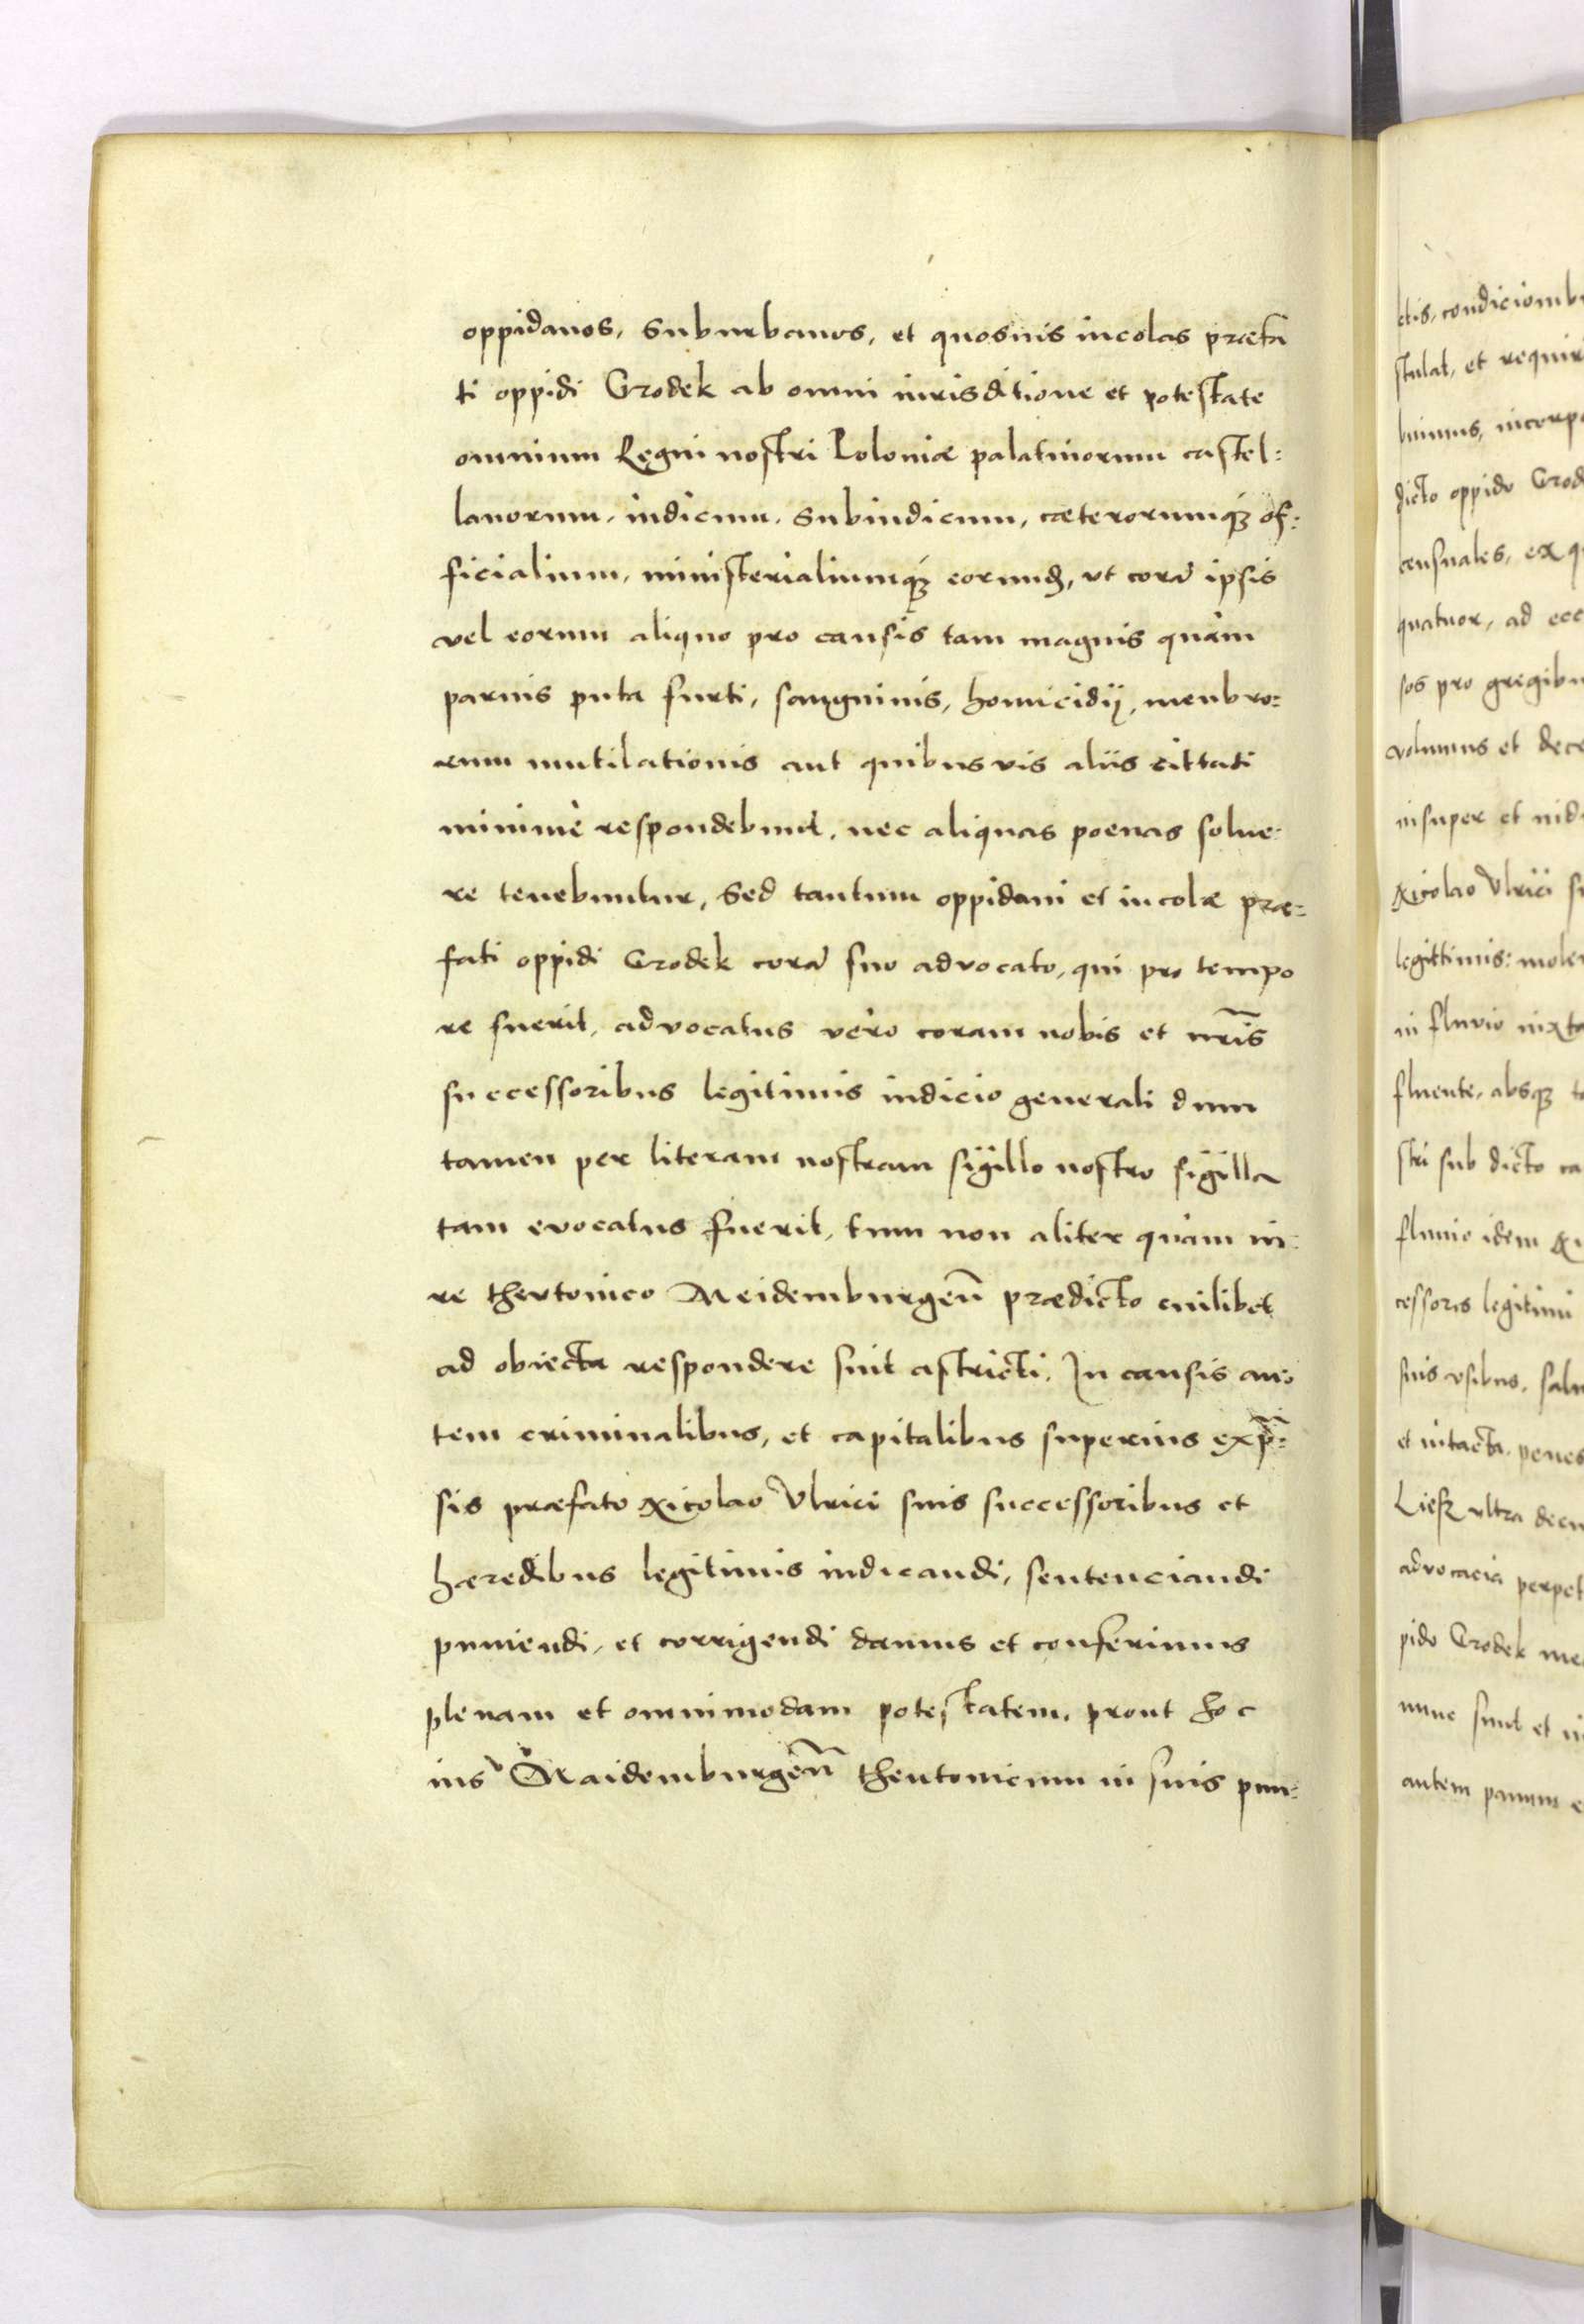 oppidanos, Suburbanos, et quosuis incolas præfa
ti oppidi Grodek ab omni iurisditione et potestate
omnium Regni nostri Poloniæ palatinorum castel:
lanorum, iudicum, Subiudicum, cæterorumqȝ of:
ficialium, ministerialiumqȝ eorundȝ, ut corā ipsis
vel eorum aliquo pro causis tam magnis quàm
paruis puta furti, sanguinis, homicidij, menbro:
rum mutilationis aut quibusvis aliis cittati
minimè respondebunt, nec aliquas poenas solue:
re tenebuntur, Sed tantum oppidani et incolæ præ:
fati oppidi Grodek corā suo advocato, qui pro tempo
re fuerit, advocatus vero coram nobis et nr̄is
successoribus legitimis iudicio generali dum
tamen per literam nostram sigillo nostro sigilla
tam evocatus fuerit, tum non aliter quàm iu:
re thevtonico Meidemburgeñ prædicto cuilibet
ad obiecta respondere sint astricti. In causis au:
tem criminalibus, et capitalibus superius exp̄:
sis præfato Nicolao Vlrici suis successoribus et
hæredibus legitimis iudicandi, sentenciandi
puniendi, et corrigendi damus et conferimus
plenam et omnimodam potestatem, prout hoc
ius Maidemburgeñ theutonicum in suis pun:
ctis, condicionib
stulat, et requir
buimus, incorpo
dicto oppido Grod
censuales, ex q
quatuor, ad ecc
sos pro gregibu
volumus et dece
insuper et
Nicolao Vlrici su
legittimis: mole
in fluvio iuxta
fluente, absqȝ t
stri sub dicto ca
fluuio idem Ni
cessores legitimi
suis vsibus, salu
et intacta, penes
ultra decu
advocacia perpet
pido Grodek me
nunc sunt et i
autem panum e